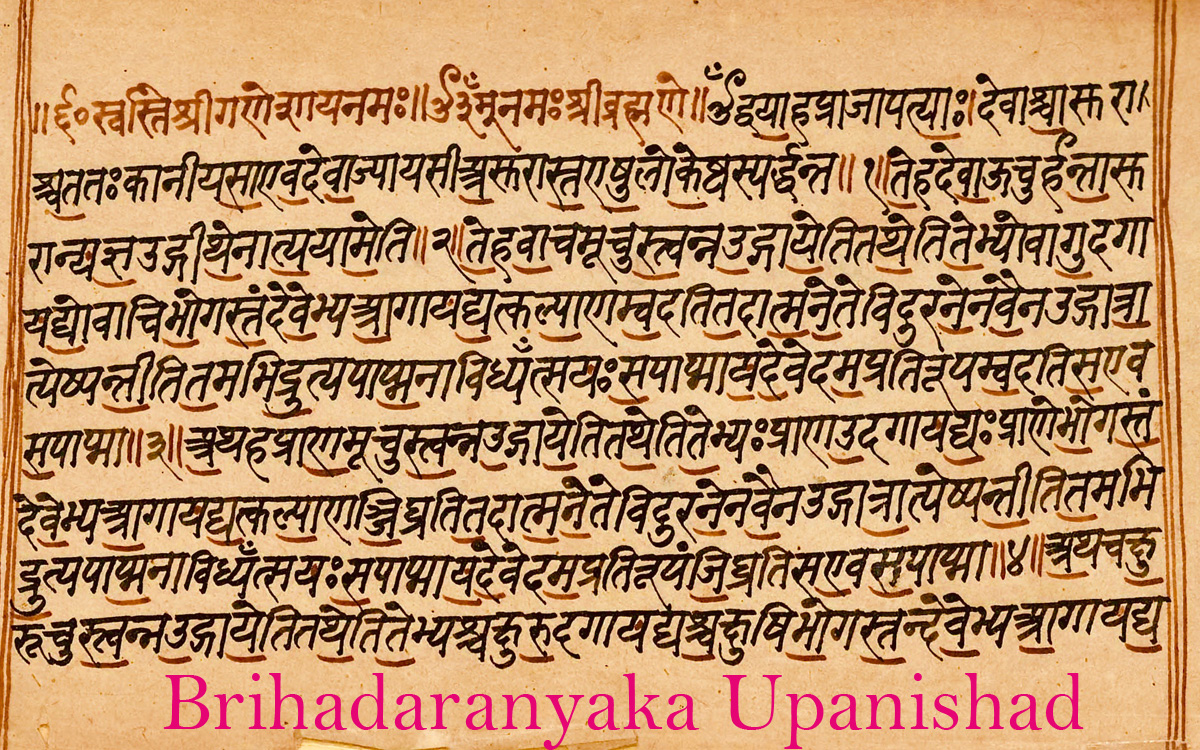 ॥ ६० स्वस्ति श्रीगणेशायनमः ॥ ॐ नमः श्रीब्रह्मणे ॥ ॐ द्वयाहप्राजापत्याः । देवाश्चासुरा ।
श्चततः कानीयसाएवदेवाज्यायसीअसुरास्तएषुलोकेष्वस्पर्द्धन्त ॥ १ ॥ तेहदेवाऊचुर्हन्तासु
रान्यज्ञउद्गीथेनात्ययामेति ॥ २ ॥ तेहवाचमूचुस्त्वन्नउद्गायेतितथेतितेभ्योवागुदगा
यद्योवाचिभोगस्तंदेवेभ्यआगायद्यत्कल्याणम्वदतितदात्मनेतेविदुरनेनवैनउद्गात्रा
त्येष्यन्तीतितमभिद्रुत्यपाप्मनाविध्यँत्सयः सपाप्मायदेवेदमप्रतिरूपम्वदतिसएव
सपाप्मा ॥ ३ ॥ अथहप्राणमूचुस्त्वन्नउद्गायेतितथेतितेभ्यः प्राणउदगायद्यः प्राणेभोगस्तं
देवेभ्यआगायद्यत्कल्याणञ्जिघ्रतितदात्मनेतेविदुरनेनवैनउद्गात्रात्येष्यन्तीतितमभि
द्रुत्यपाप्मनाविध्यँत्सयः सपाप्मायदेवेदमप्रतिरूपंजिघ्रतिसएवसपाप्मा ॥ ४ ॥ अथचक्षु
रूचुस्त्वन्नउद्गायेतितथेतितेभ्यश्चक्षुरुदगायद्यश्चक्षुषिभोगस्तन्देवेभ्यआगायद्य
Brihadaranyaka Upanishad